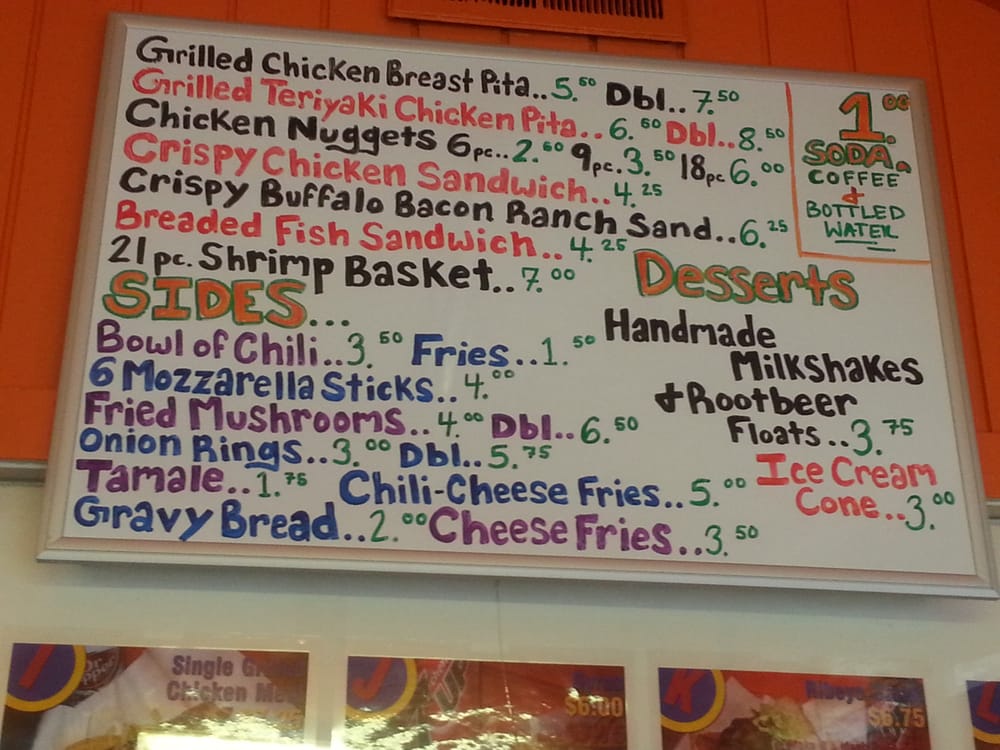 Grilled Chicken Breast Pita..5.50 Dbl..7.50
Grilled Teriyaki Chicken Pita..6.50 Dbl..8.50
Chicken Nuggets 6pc..2.50 9pc.3.50 18pc 6.00
Crispy Chicken Sandwich..4.25
Crispy Buffalo Bacon Ranch Sand..6.25
Breaded Fish Sandwich..4.25
21 pc. Shrimp Basket..7.00
1.00
SODA.
COFFEE
&
BOTTLED
WATER
SIDES...
Bowl of Chili..3.50 Fries..1.50
6 Mozzarella Sticks..4.00
Fried Mushrooms..4.00 Dbl..6.50
Onion Rings..3.00 Dbl..5.75
Tamale..1.75 Chili-Cheese Fries..5.00
Gravy Bread..2.00 Cheese Fries..3.50
Desserts
Handmade
Milkshakes
& Rootbeer
Floats..3.75
Ice Cream
Cone..3.00
I
Dr Pepper
Single
Chicken
J
$6.00
K
Ribeye
$6.75
L